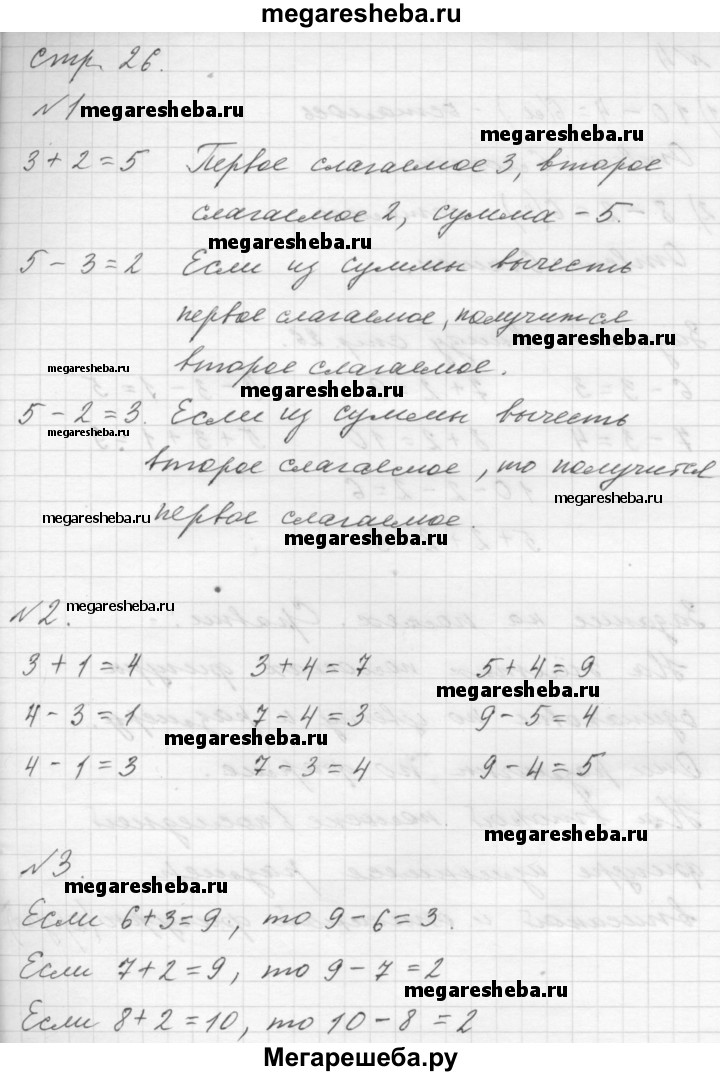 megaresheba.ru
стр. 26.
№1 megaresheba.ru
megaresheba.ru
3 + 2 = 5 Первое слагаемое 3, второе
слагаемое 2, сумма – 5.
megaresheba.ru
5 – 3 = 2 Если из суммы вычесть
первое слагаемое, получится
megaresheba.ru
megaresheba.ru второе слагаемое.
megaresheba.ru
5 – 2 = 3. Если из суммы вычесть
megaresheba.ru
второе слагаемое, то получится
megaresheba.ru
megaresheba.ru первое слагаемое.
megaresheba.ru
№2. megaresheba.ru
3 + 1 = 4 3 + 4 = 7 5 + 4 = 9
megaresheba.ru
4 – 3 = 1 7 – 4 = 3 9 – 5 = 4
megaresheba.ru
4 – 1 = 3 7 – 3 = 4 9 – 4 = 5
megaresheba.ru
№3. megaresheba.ru
Если 6 + 3 = 9, то 9 – 6 = 3.
Если 7 + 2 = 9, то 9 – 7 = 2
megaresheba.ru
Если 8 + 2 = 10, то 10 – 8 = 2
Мегарешеба.ру